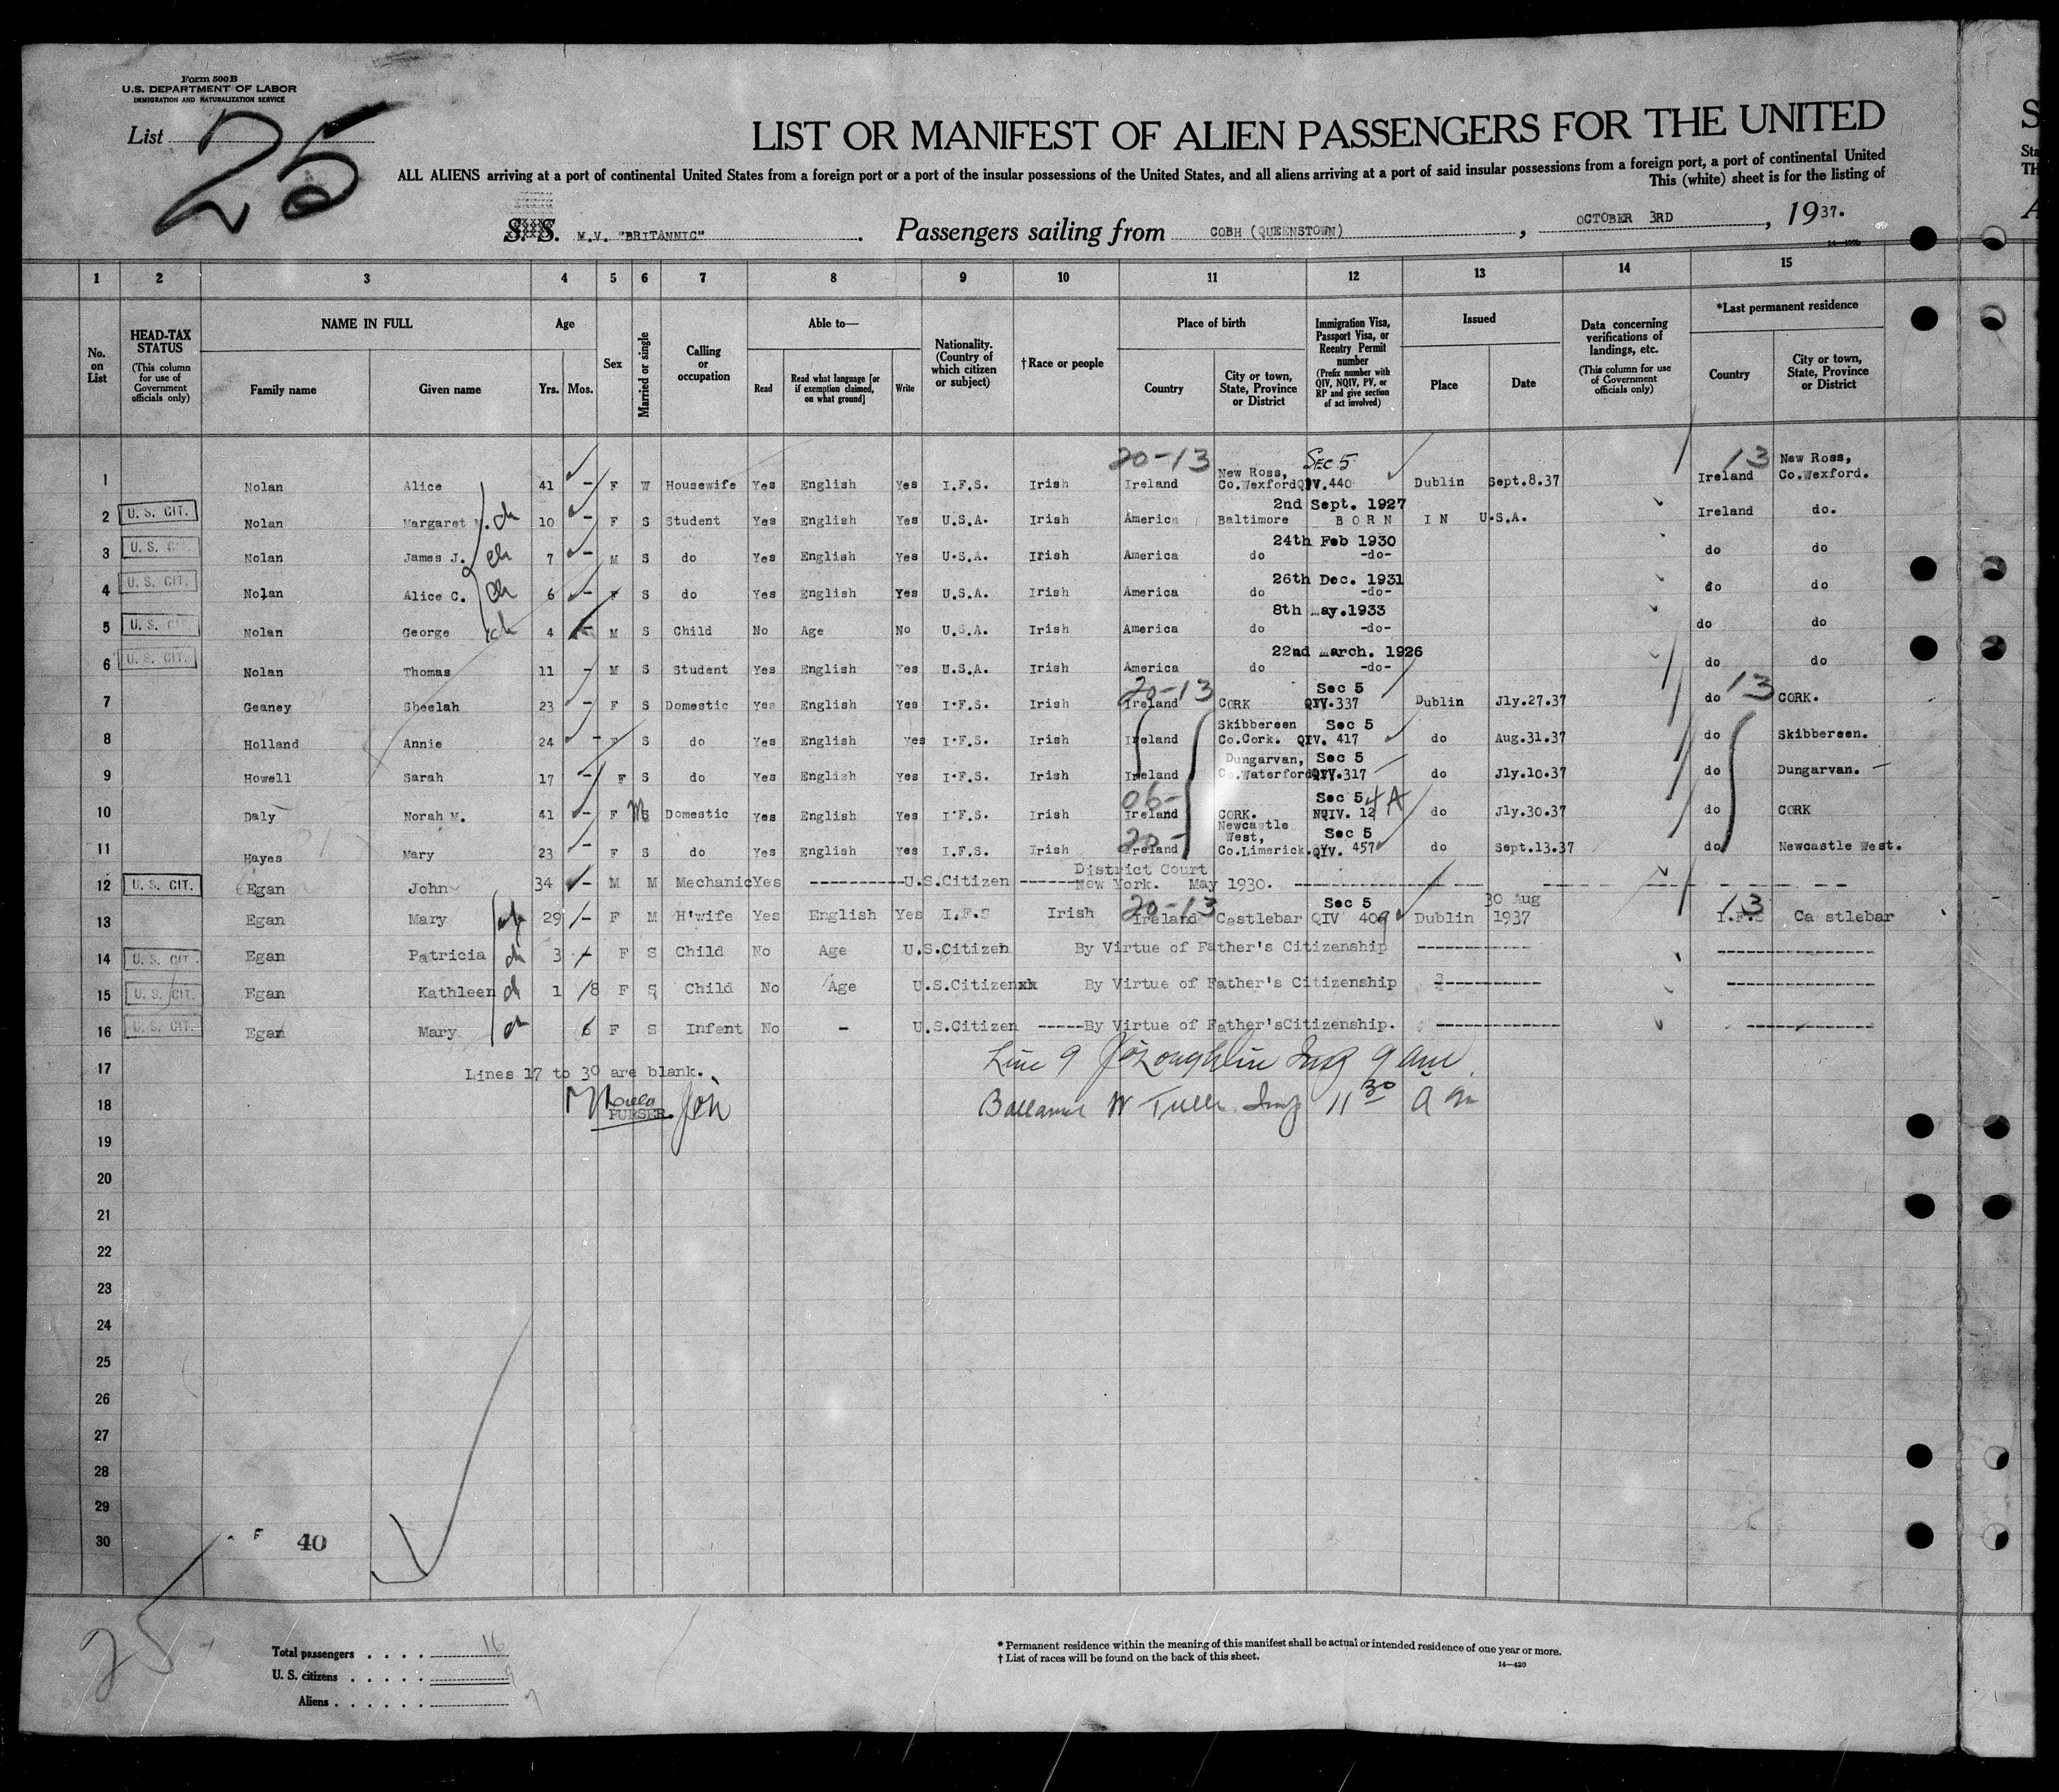 Form 500B
U.S. DEPARTMENT OF LABOR
IMMIGRATION AND NATURALIZATION SERVICE
List 25
LIST OR MANIFEST OF ALIEN PASSENGERS FOR THE UNITED
ALL ALIENS arriving at a port of continental United States from a foreign port or a port of the insular possessions of the United States, and all aliens arriving at a port of said insular possessions from a foreign port, a port of continental United
This (white) sheet is for the listing of
S. S. M.V. "BRITANNIC". Passengers sailing from COBH (QUEENSTOWN), OCTOBER 3RD, 1937.
1 2 3 4 5 6 7 8 9 10 11 12 13 14 15
No. on List
HEAD-TAX STATUS
(This column for use of Government officials only)
NAME IN FULL
Family name Given name
Age
Yrs. Mos.
Sex
Married or single
Calling or occupation
Able to—
Read Read what language [or if exemption claimed, on what ground] Write
Nationality. (Country of which citizen or subject)
†Race or people
Place of birth
Country City or town, State, Province or District
Immigration Visa, Passport Visa, or Reentry Permit number
(Prefix number with QIV, NQIV, PV, or RP and give section of act involved)
Issued
Place Date
Data concerning verifications of landings, etc.
(This column for use of Government officials only)
*Last permanent residence
Country City or town, State, Province or District
20-13 New Ross, Sec 5 13 New Ross,
1 Nolan Alice 41 - F W Housewife Yes English Yes I.F.S. Irish Ireland Co.Wexford QIV.440 Dublin Sept.8.37 Ireland Co.Wexford.
2nd Sept. 1927
2 U. S. CIT. Nolan Margaret ch 10 - F S Student Yes English Yes U.S.A. Irish America Baltimore BORN IN U.S.A. Ireland do.
24th Feb 1930
3 U. S. CIT. Nolan James J. ch 7 - M S do Yes English Yes U.S.A. Irish America do -do- do do
26th Dec. 1931
4 U. S. CIT. Nolan Alice C. ch 6 - F S do Yes English Yes U.S.A. Irish America do -do- do do
8th may.1933
5 U. S. CIT. Nolan George ch 4 - M S Child No Age No U.S.A. Irish America do -do- do do
22nd march. 1926
6 U. S. CIT. Nolan Thomas 11 - M S Student Yes English Yes U.S.A. Irish America do -do- do do
20-13 Sec 5 13
7 Geaney Sheelah 23 - F S Domestic Yes English Yes I.F.S. Irish Ireland CORK QIV.337 Dublin Jly.27.37 do CORK.
Skibbereen Sec 5
8 Holland Annie 24 - F S do Yes English Yes I.F.S. Irish Ireland Co.Cork. QIV. 417 do Aug.31.37 do Skibbereen.
Dungarvan, Sec 5
9 Howell Sarah 17 - F S do Yes English Yes I.F.S. Irish Ireland Co.Waterford QIV.317 do Jly.10.37 do Dungarvan.
06- Sec 5 4A
10 Daly Norah M. 41 - F M S Domestic Yes English Yes I.F.S. Irish Ireland CORK. NQIV. 12 do Jly.30.37 do CORK
20- Newcastle West, Sec 5
11 Hayes Mary 23 - F S do Yes English Yes I.F.S. Irish Ireland Co.Limerick. QIV. 457 do Sept.13.37 do Newcastle West.
District Court
12 U. S. CIT. Egan John 34 - M M Mechanic Yes ---------- U.S.Citizen ------ New York. May 1930. ----------
20-13 Sec 5 30 Aug 13
13 Egan Mary 29 - F M H'wife Yes English Yes I.F.S Irish Ireland Castlebar QIV 409 Dublin 1937 I.F.S Castlebar
14 U. S. CIT. Egan Patricia ch 3 - F S Child No Age U.S.Citizen By Virtue of Father's Citizenship ------------ ------------
15 U. S. CIT. Egan Kathleen ch 1 8 F S Child No Age U.S.Citizen xx By Virtue of Father's Citizenship ------------ ------------
16 U. S. CIT. Egan Mary ch 6 F S Infent No - U.S.Citizen -----By Virtue of Father'sCitizenship. ------------ ------------
17 Lines 17 to 30 are blank. Line 9 J O'Loughlin Insp 9 am
18 PURSER. W Tulle Insp 11 30 a m
19
20
21
22
23
24
25
26
27
28
29
30 F 40
25
Total passengers . . . . 16
U. S. citizens . . . . . 9
Aliens . . . . . . 7
* Permanent residence within the meaning of this manifest shall be actual or intended residence of one year or more.
† List of races will be found on the back of this sheet.
14—420